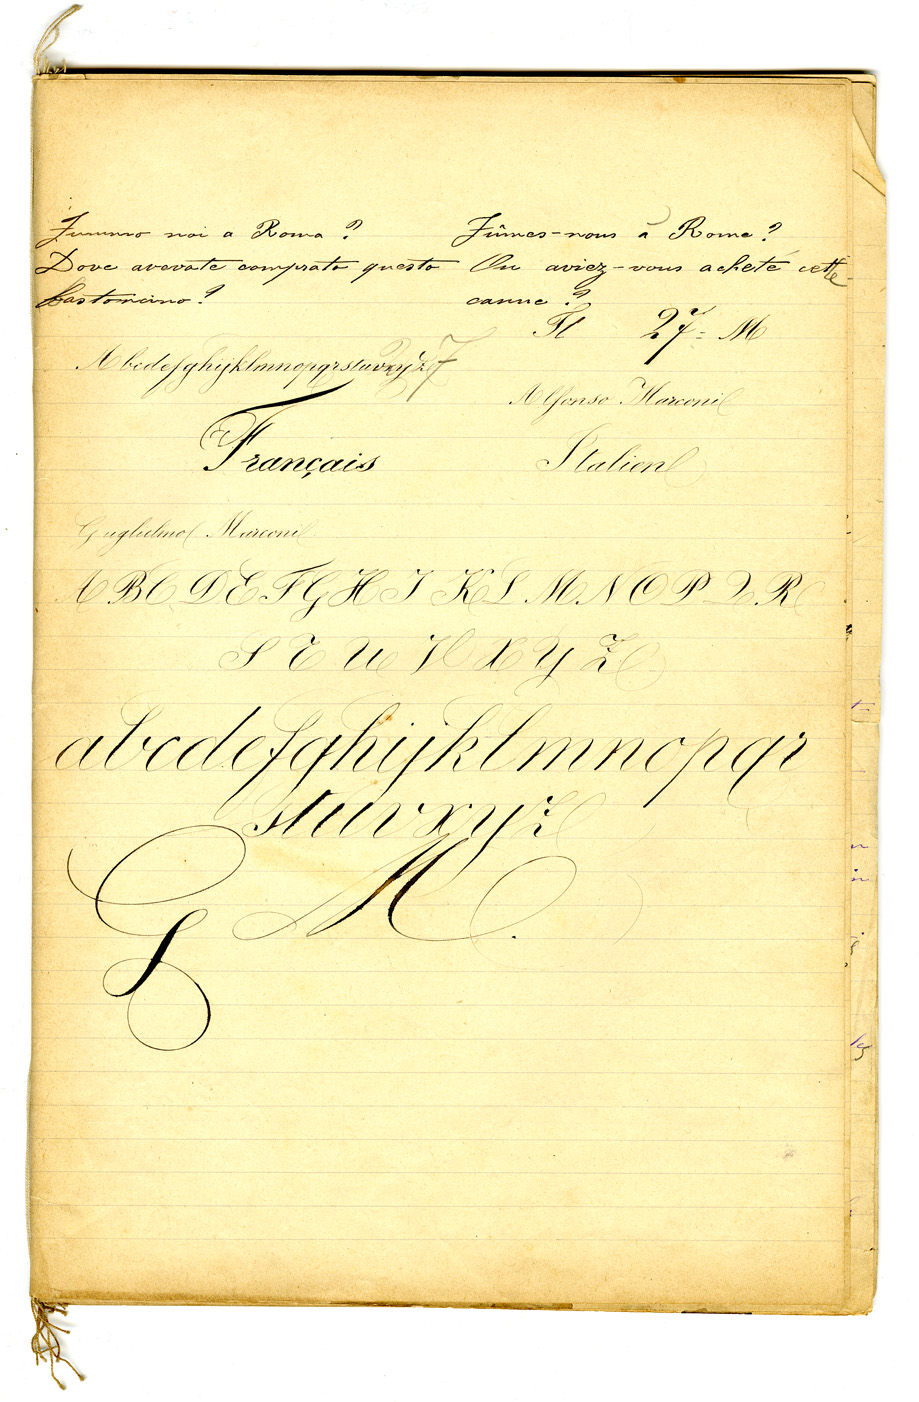 Fummo noi a Roma ?
Dove avevate comprato questo
bastoncino ?
Fûmes-nous à Rome ?
Où aviez-vous acheté cette
canne ?
27= M
Abcdefghijklmnopqrstuvxyz 7
Alfonso Marconi
Français
Italien
Guglielmo Marconi
A B C D E F G H I K L M N O P Q R
S T U V X Y Z
abcdefghijklmnopqr
stuvxyz
G M